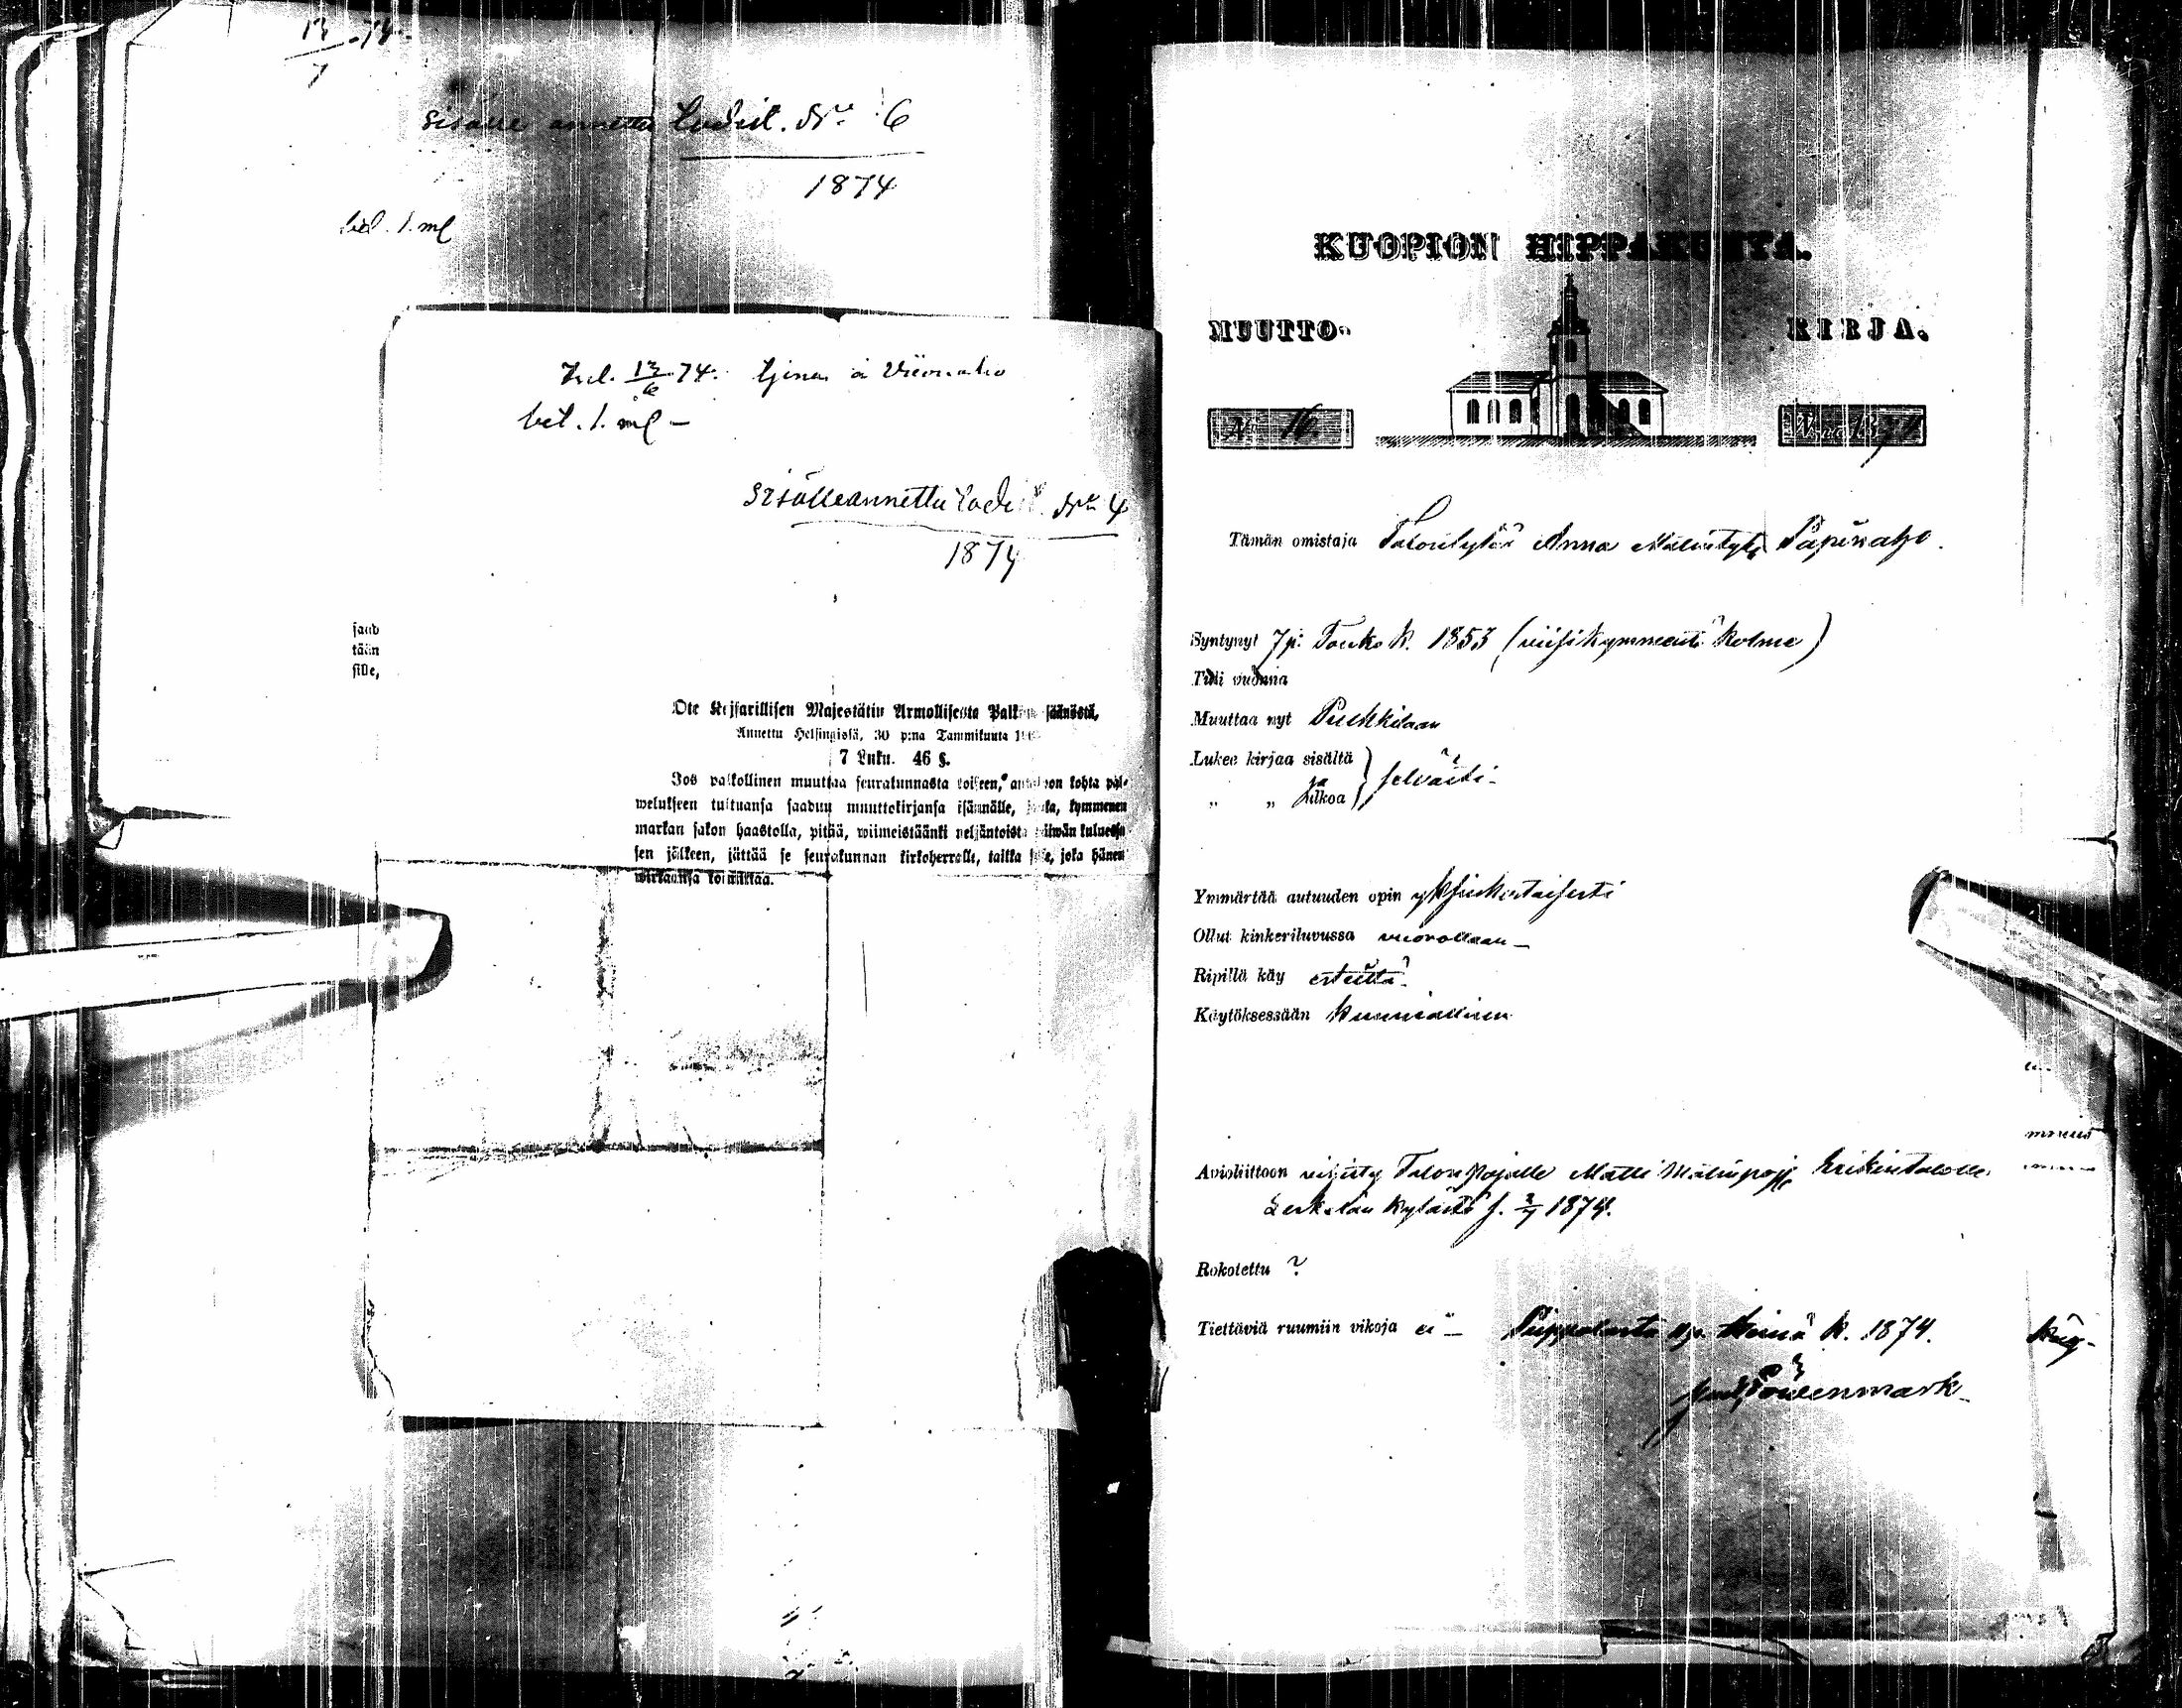 13/7 74.
Sisälle annettu todist. No 6
1874
bet. 1. ml
Inl. 13/6 74.
bet. 1. ml –
Sisälleannettu todist. No 4
1874
saad
tään
sille,
Ote Keisarillisen Majestätin Armollisesta Palkollissäänöstä,
Annettu Helsingissä, 30 p:na Tammikuuta
7 Luku. 46 §.
Jos palkollinen muuttaa seurakunnasta toiseen, antakoon kohta pal-
welukseen tultuansa saadun muuttokirjansa isännälle, joka, kymmenen
markan sakon haastolla, pitää, wiimeistäänki neljäntoista päiwän kuluessa
sen jälkeen, jättää se seurakunnan kirkoherralle, taikka sille, joka hänen
wirkaansa toimittaa.
KUOPION HIPPAKUNTA.
MUUTTO- KIRJA.
N 16 1874
Tämän omistaja Talontytär Anna Matintytär
Syntynyt 7 p: Touko k. 1853 (viisikymmentä kolme)
Tuli vuonna
Muuttaa nyt Pulkkilaan
Lukee kirjaa sisältä
„ „ ja ulkoa } selvästi –
Ymmärtää autuuden opin yksinkertaisesti
Ollut kinkeriluvussa vuorollaan –
Ripillä käy esteettä –
Käytöksessään kunniallinen
Avioliittoon vihitty Talonpojalle Matti Matinpoj.
kylästä s. 2/7 1874.
Rokotettu ?
Tiettäviä ruumiin vikoja ei – Piippolasta Heinä k. 1874.